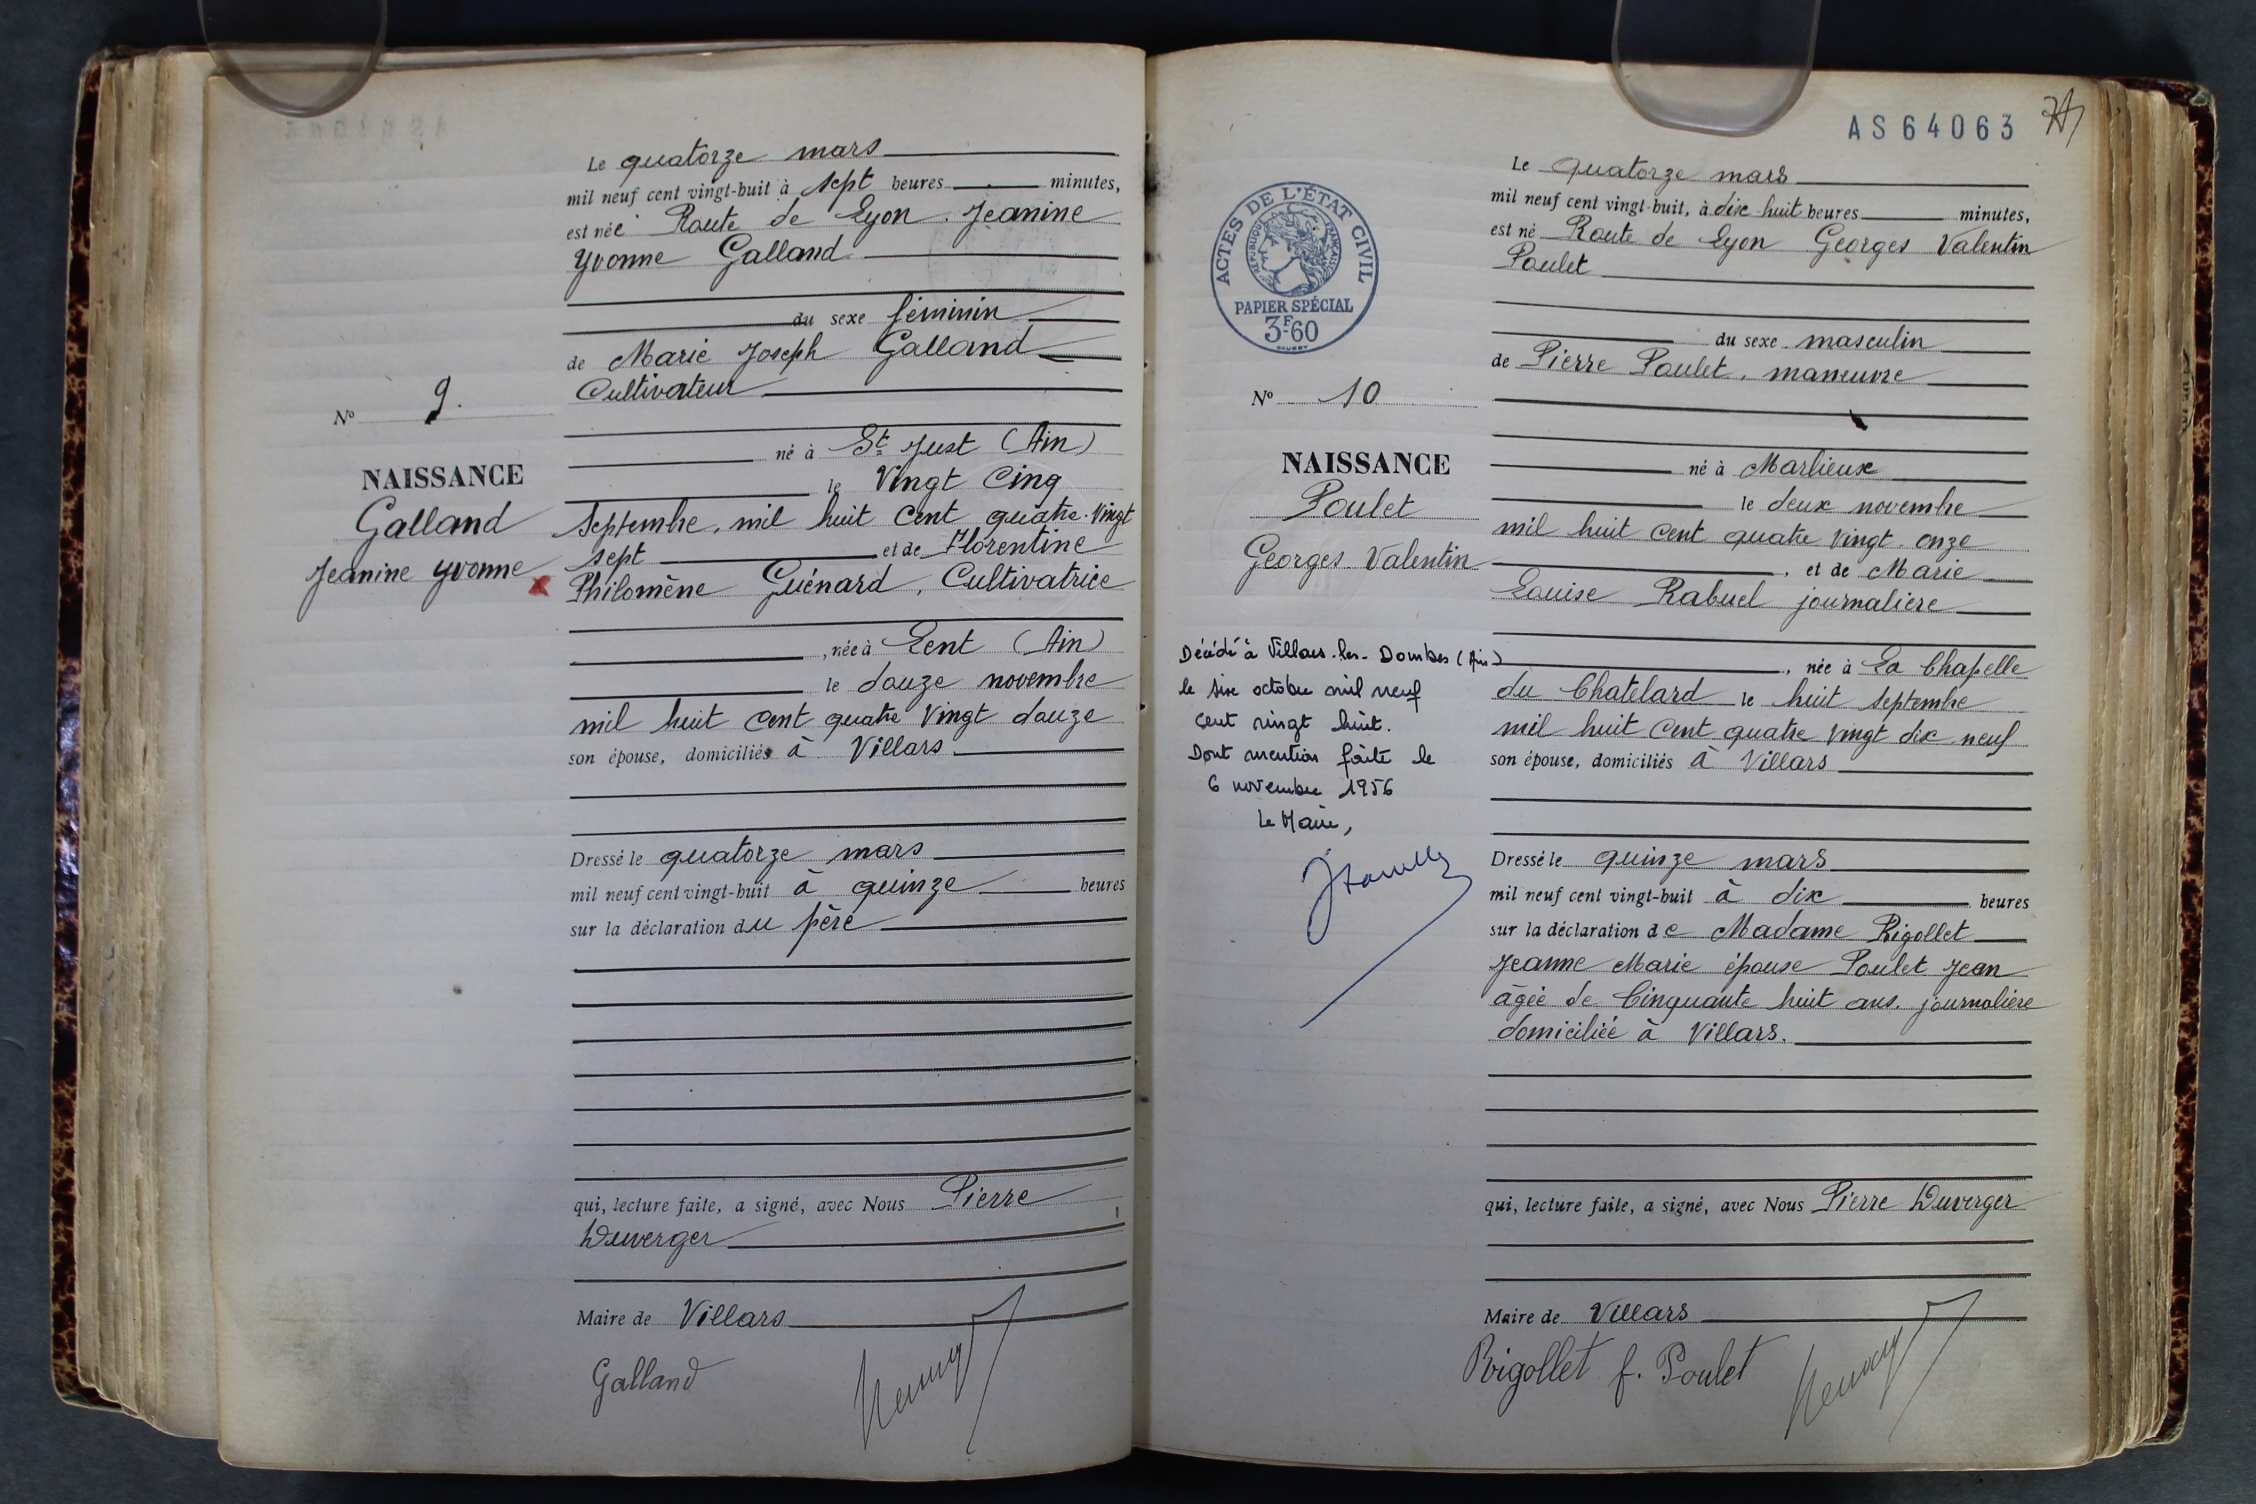 Le quatorze mars
mil neuf cent vingt-huit à sept heures minutes,
est née Route de Lyon. Jeanine
Yvonne Galland
du sexe féminin
de Marie Joseph Galland
Cultivateur
Nº 9.
né à St Just (Ain)
NAISSANCE
le Vingt Cinq
Galland
Septembre, mil huit cent quatre-vingt
sept et de Florentine
Jeanine Yvonne
Philomène Guénard, Cultivatrice
, née à Lent (Ain)
le douze novembre
mil huit cent quatre vingt douze
son épouse, domiciliés à Villars
Dressé le quatorze mars
mil neuf cent vingt-huit à quinze heures
sur la déclaration du père
qui, lecture faite, a signé, avec Nous Pierre
Duverger
Maire de Villars
Galland
AS64063
Le quatorze mars
mil neuf cent vingt-huit, à dix huit heures minutes,
est né Route de Lyon Georges Valentin
Poulet
ACTES DE L'ÉTAT CIVIL
RÉPUBLIQUE FRANÇAISE
PAPIER SPÉCIAL
3F60
du sexe masculin
de Pierre Poulet, manœuvre
Nº 10
NAISSANCE
né à Marlieux
Poulet
le deux novembre
mil huit cent quatre vingt onze
Georges Valentin
, et de Marie
Louise Rabuel journalière
Décédé à Villars-les-Dombes (Ain)
le six octobre mil neuf
cent vingt huit.
Dont mention faite le
6 novembre 1956
Le Maire,
, née à La Chapelle
du Chatelard le huit septembre
mil huit cent quatre vingt dix neuf
son épouse, domiciliés à Villars
Dressé le quinze mars
mil neuf cent vingt-huit à dix heures
sur la déclaration de Madame Rigollet
Jeanne Marie épouse Poulet Jean
âgée de Cinquante huit ans. journalière
domiciliée à Villars.
qui, lecture faite, a signé, avec Nous Pierre Duverger
Maire de Villars
Rigollet f. Poulet